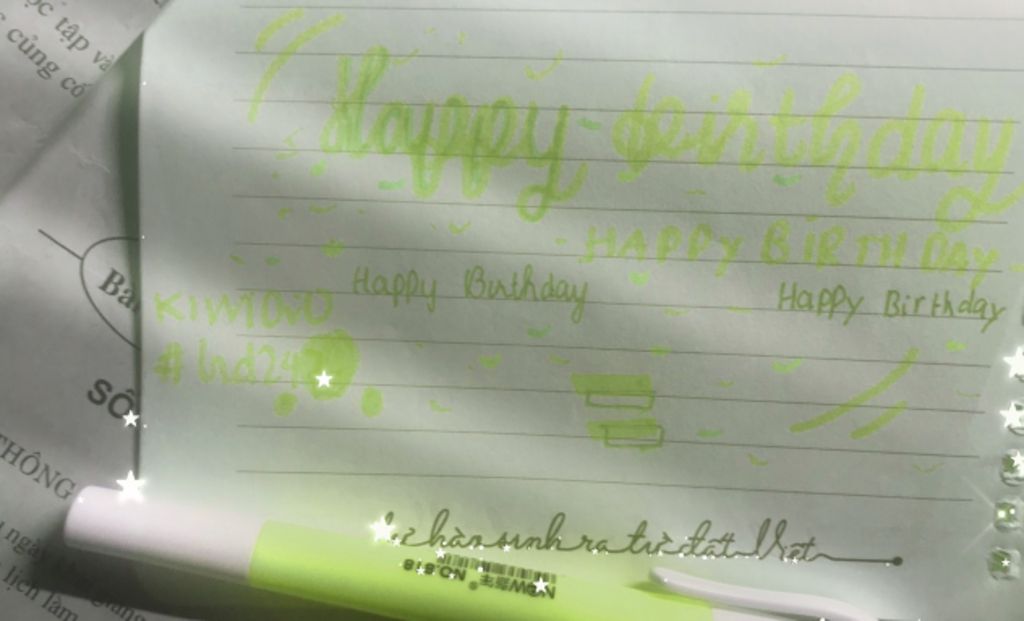 ọc tập và
củng cố
Happy birthday
HAPPY BIRTHDAY
Happy Birthday
Happy Birthday
KIWIOVO
Ba
SỐ
THÔNG
hàn sinh ra từ đất Việt
NO.818
lịch làm